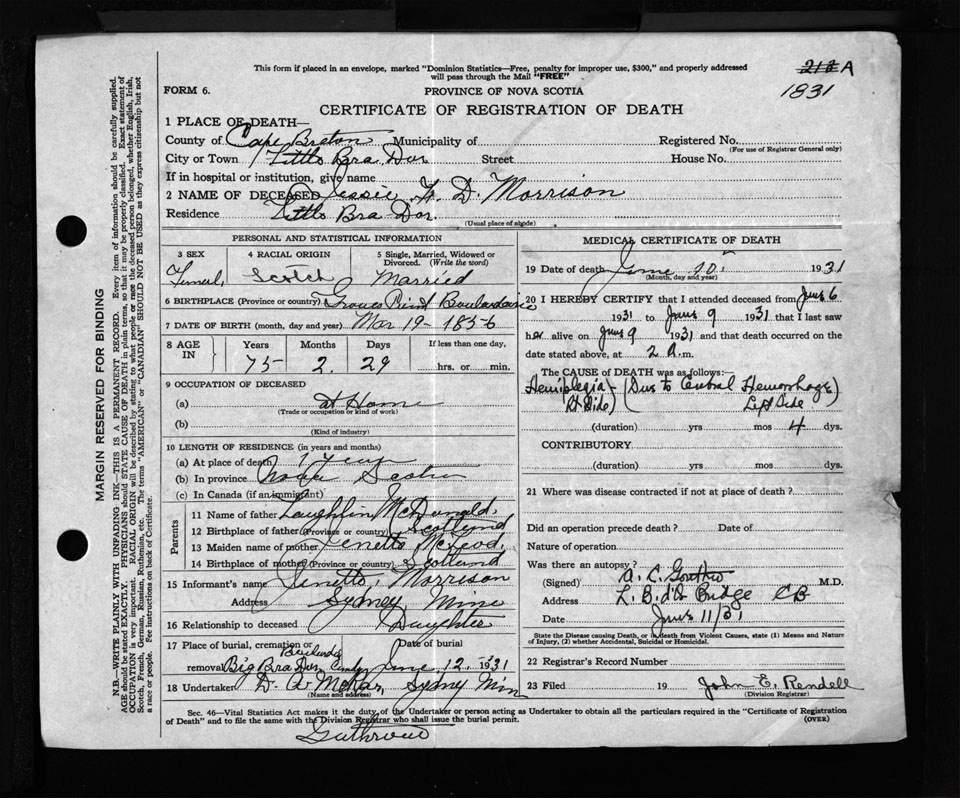 This form if placed in an envelope, marked "Dominion Statistics—Free, penalty for improper use, $300," and properly addressed
will pass through the Mail "FREE"
212 A
1831
FORM 6.
PROVINCE OF NOVA SCOTIA
CERTIFICATE OF REGISTRATION OF DEATH
1 PLACE OF DEATH—
County of Cape Breton Municipality of Registered No.
(For use of Registrar General only)
City or Town Little Bra Dor Street House No.
If in hospital or institution, give name
2 NAME OF DECEASED Jessie F. D. Morrison
Residence Little Bra Dor.
(Usual place of abode)
PERSONAL AND STATISTICAL INFORMATION
3 SEX 4 RACIAL ORIGIN 5 Single, Married, Widowed or
Divorced. (Write the word)
Female Scotch Married
6 BIRTHPLACE (Province or country) Groves Point Boulardarie
7 DATE OF BIRTH (month, day and year) Mar 19 - 1856
8 AGE IN Years Months Days If less than one day,
75 2. 29 hrs. or min.
9 OCCUPATION OF DECEASED
(a) at Home
(Trade or occupation or kind of work)
(b)
(Kind of industry)
10 LENGTH OF RESIDENCE (in years and months)
(a) At place of death 1 year
(b) In province Nova Scotia
(c) In Canada (if an immigrant)
Parents
11 Name of father Laughlin McDonald,
12 Birthplace of father (Province or country) Scotland
13 Maiden name of mother Jenetto McLeod,
14 Birthplace of mother (Province or country) Scotland
15 Informant's name Jinetto, Morrison
Address Sydney, Mine
16 Relationship to deceased Daughter
17 Place of burial, cremation or Date of burial
removal Big Bra Dor, June 12, 1931
18 Undertaker D. A McKay, Sydney Min
(Name and address)
MEDICAL CERTIFICATE OF DEATH
19 Date of death June 10 1931
(Month, day and year)
20 I HEREBY CERTIFY that I attended deceased from June 6
1931 to June 9 1931 that I last saw
her alive on June 9 1931 and that death occurred on the
date stated above, at 2 a.m.
The CAUSE OF DEATH was as follows:—
Hemiplegia - (Due to Cerebral Hemorrhage)
Rt Side) Left Side
(duration) yrs mos 4 dys.
CONTRIBUTORY
(duration) yrs mos dys.
21 Where was disease contracted if not at place of death ?
Did an operation precede death ? Date of
Nature of operation
Was there an autopsy ?
(Signed) M.D.
Address L. B. d'Or Bridge CB
Date June 11/31
State the Disease causing Death, or in death from Violent Causes, state (1) Means and Nature
of Injury, (2) whether Accidental, Suicidal or Homicidal.
22 Registrar's Record Number
23 Filed 19 John E. Rendell
(Division Registrar)
Sec. 46—Vital Statistics Act makes it the duty of the Undertaker or person acting as Undertaker to obtain all the particulars required in the "Certificate of Registration
of Death" and to file the same with the Division Registrar who shall issue the burial permit. (OVER)
MARGIN RESERVED FOR BINDING
N.B.—WRITE PLAINLY WITH UNFADING INK—THIS IS A PERMANENT RECORD. Every item of information should be carefully supplied.
AGE should be stated EXACTLY. PHYSICIANS should STATE CAUSE OF DEATH in plain terms, so that it may be properly classified. Exact statement of
OCCUPATION is very important. RACIAL ORIGIN will be described by stating to what people or race the deceased person belonged, whether English, Irish,
Scotch, French, German, Russian, Ruthenian, etc. The terms "AMERICAN" or "CANADIAN" SHOULD NOT BE USED as they express citizenship but not
a race or people. See instructions on back of Certificate.